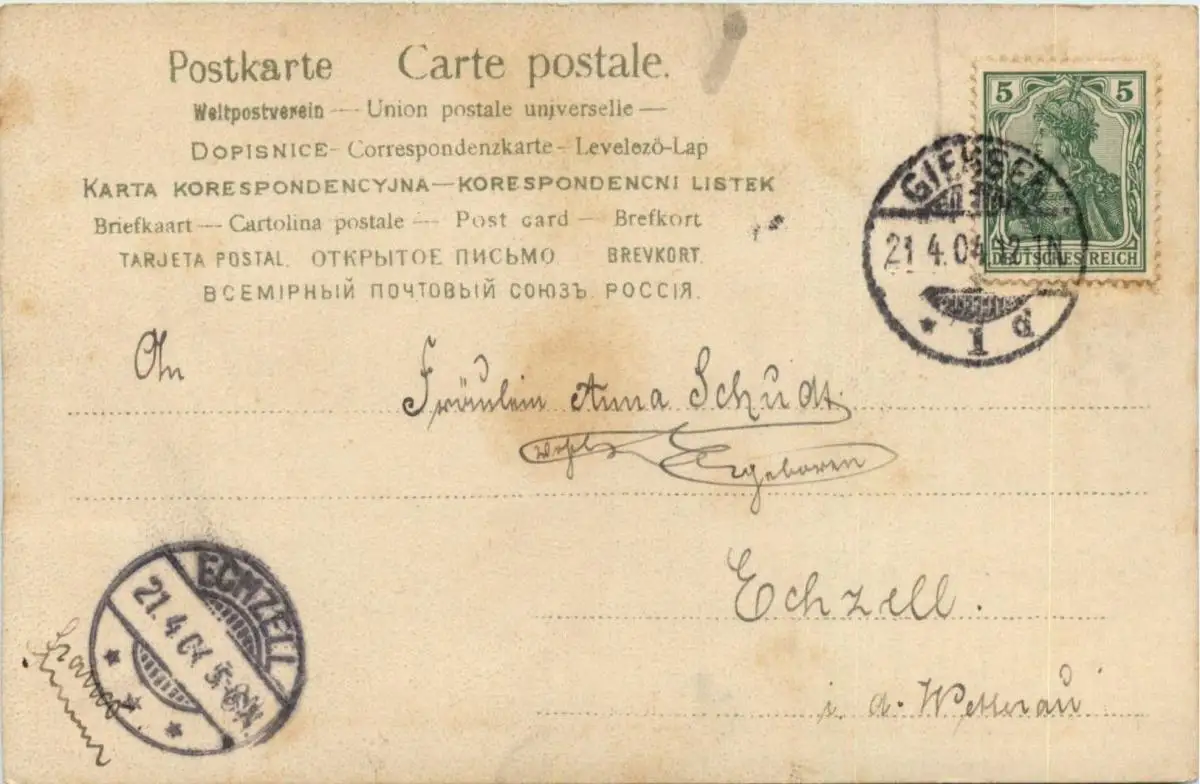 Postkarte Carte postale.
Weltpostverein — Union postale universelle —
DOPISNICE - Correspondenzkarte - Levelező-Lap
KARTA KORESPONDENCYJNA — KORESPONDENCNI LISTEK
Briefkaart — Cartolina postale — Post card — Brefkort
TARJETA POSTAL. ОТКРЫТОЕ ПИСЬМО BREVKORT.
ВСЕМІРНЫЙ ПОЧТОВЫЙ СОЮЗЪ. РОССІЯ.
5 5
DEUTSCHES REICH
GIESSEN
21.4.04 12-1N
* 1 d
An Fräulein Anna Schudt.
Wohl geboren
Echzell.
i. d. Wetterau
ECHZELL
21.4.04 5-6N